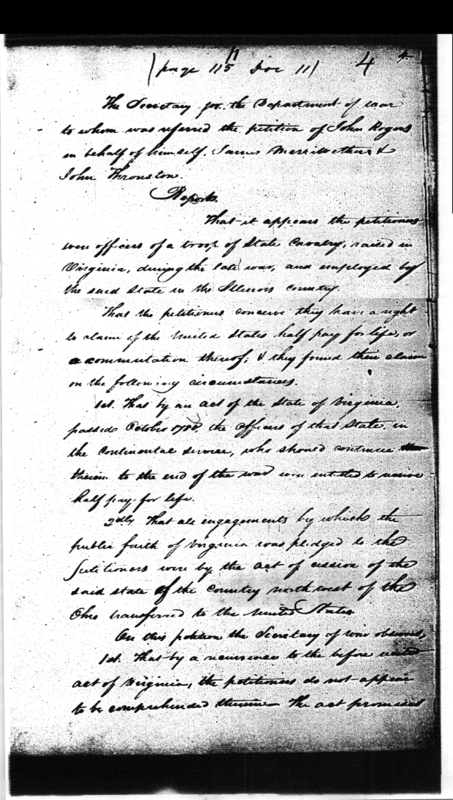 (page 115 Doc 11) 4
The Secretary for the Department of war
to whom was referred the petition of John Rogers
in behalf of himself, James Merriwether &
John Thruston.
Reports
That it appears the petitioners
were officers of a troop of State Cavalry, raised in
Virginia, during the late war, and employed by
the said State in the Illinois Country.
That the petitioners conceive they have a right
to claim of the United States half pay for life, or
a commutation thereof; & they found their claim
on the following circumstances.
1st. That by an act of the State of Virginia,
passed October the officers of that State in
the Continental Service, who should continue
therein to the end of the war were entitled to receive
half pay for life.
2dly That all engagements by which the
public faith of Virginia was pledged to the
petitioners were by the act of cession of the
said state of the Country north west of the
Ohio transferred to the United States
On this petition the Secretary of war observes,
1st. That by a recurrence to the before
act of Virginia, the petitioners do not appear
to be comprehended therein The act promised